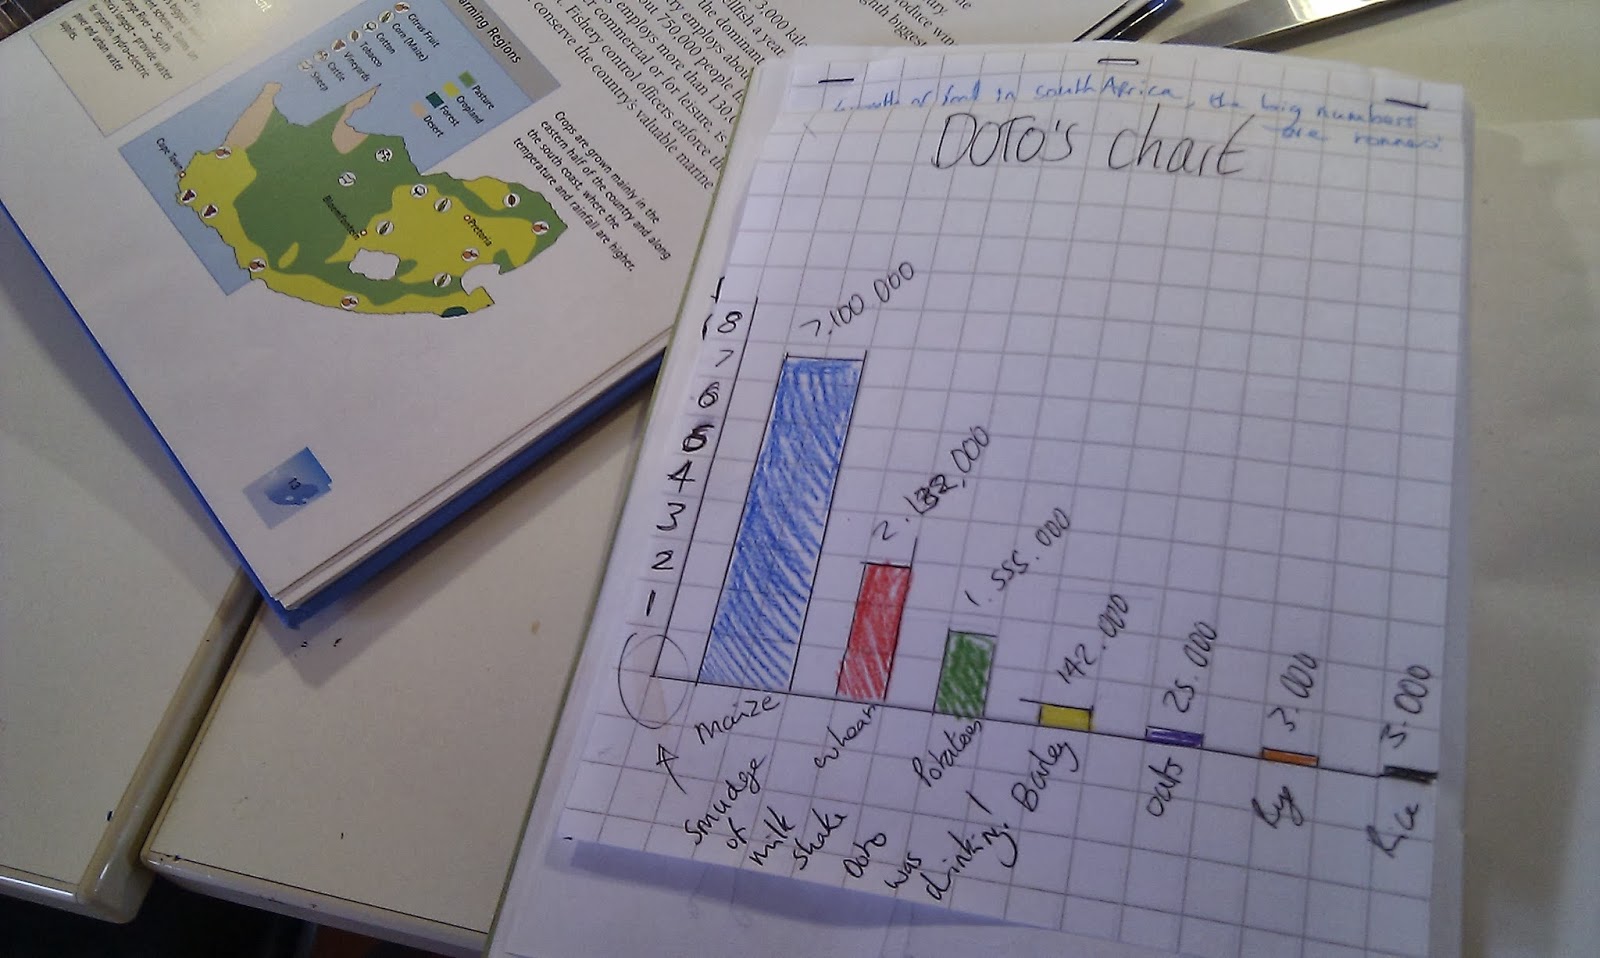 farming Regions
Pasture
Cropland
Forest
Desert
Citrus Fruit
Corn (Maize)
Cotton
Tobacco
Vineyards
Cattle
Sheep
Cape Town
Bloemfontein
Pretoria
Crops are grown mainly in the
eastern half of the country and along
the south coast, where the
temperature and rainfall are higher.
3,000 kilo
ellfish a year
the dominant
ery employs about
out 750,000 people fish
employs more than 130,0
er commercial or for leisure, is
t. Fishery control officers enforce the
conserve the country's valuable marine
produce wine
ghth biggest
South
provide water
hydro-electric
and urban water
supplies.
13
of food in South Africa, the big numbers
are
DOTO'S chart
8
7
6
5
4
3
2
1
7.100.000
2.132,000
1.555.000
142.000
25.000
3.000
3.000
Maize
wheat
Potatoes
Barley
oats
Rye
Rice
Smudge
of
milk
shake
Doto
was
drinking!